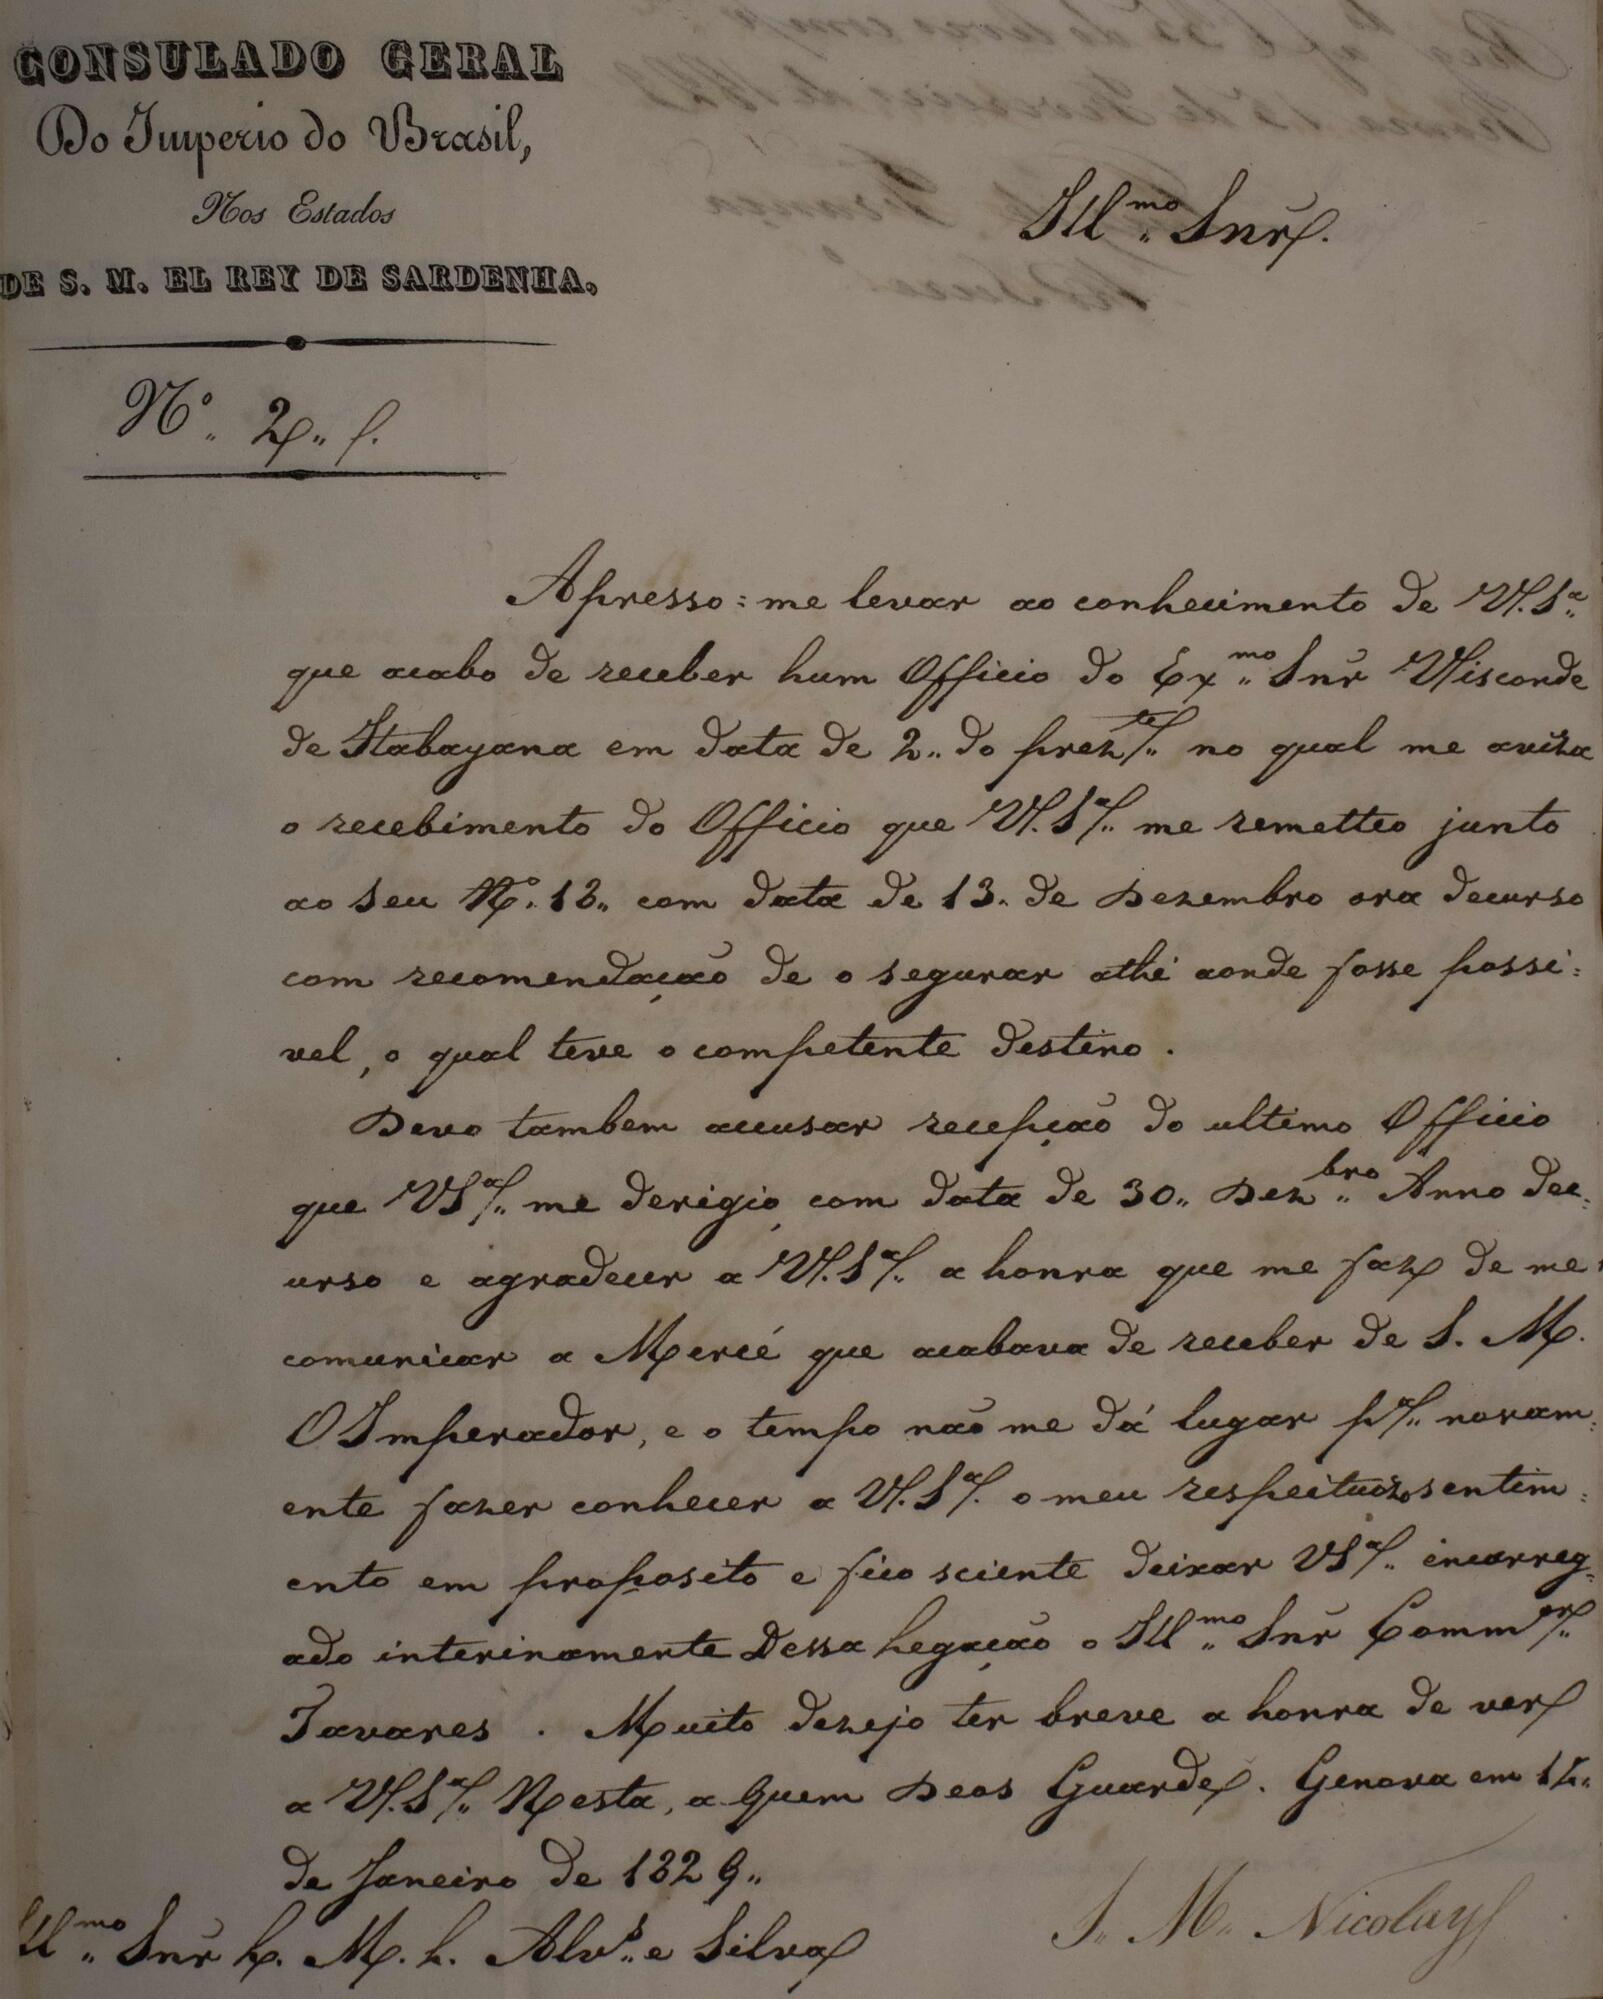 CONSULADO GERAL
Do Imperio do Brasil,
Nos Estados
DE S. M. EL REY DE SARDENHA.
Nº. 2,,
Illmo,, Snr̃.
Apresso=me levar ao conhecimento de V.Sa,,
que acabo de receber hum Officio do Exmo,, Snr̃ Visconde
de Itabayana em data de 2,, do prezte,, no qual me aviza
o recebimento do Officio que V.Sa,, me remetteo junto
ao seu Nº. 18,, com data de 13,, de Dezembro ora decurso
com recomendação de o segurar athé aonde fosse possi=
vel, o qual teve o competente destino.
Devo tambem accusar recepção do ultimo Officio
que VSa,, me derigio, com data de 30,, Dezbro,, Anno dec=
urso e agradecer a V.Sa,, a honra que me faz de me
comunicar a Mercé que acabava de receber de S. M.
O Imperador, e o tempo não me dá lugar pa,, novam=
ente fazer conhecer a V.Sa. o meu respeituozo sentim=
ento em proposito e fico sciente deixar VSa,, encarreg=
ado interinamente Dessa Legação o Illmo,, Snr̃ Commor,,
Tavares. Muito dezejo ter breve a honra de ver
a V.Sa,, Nesta, a Quem Deos Guarde. Genova em 14,,
de Janeiro de 1829,,
Illmo,, Snr̃ L. M. L. Alvs,, e Silva
J,, M,, Nicolay